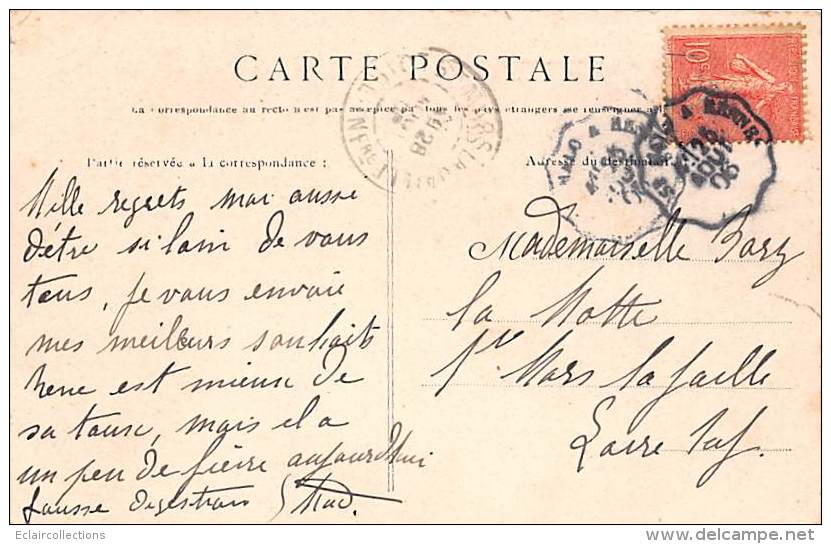 CARTE POSTALE
La correspondance au recto n'est pas acceptée par tous les pays étrangers (se renseigner à la
Partie réservée à la correspondance :
Adresse du destinataire
Mille regrets moi aussi
d'être si loin de vous
tous, je vous envoie
mes meilleurs souhaits
René est mieux de
sa toux, mais il a
un peu de fièvre aujourd'hui
fausse digestion Mad.
Mademoiselle Bory
La Motte
St Mars la Jaille
Loire Inf.
MALO A RENNES
26
AOUT
05
ST MARS LA JAILLE
LOIRE INFRE
9 28
Eclaircollections
delcampe.net